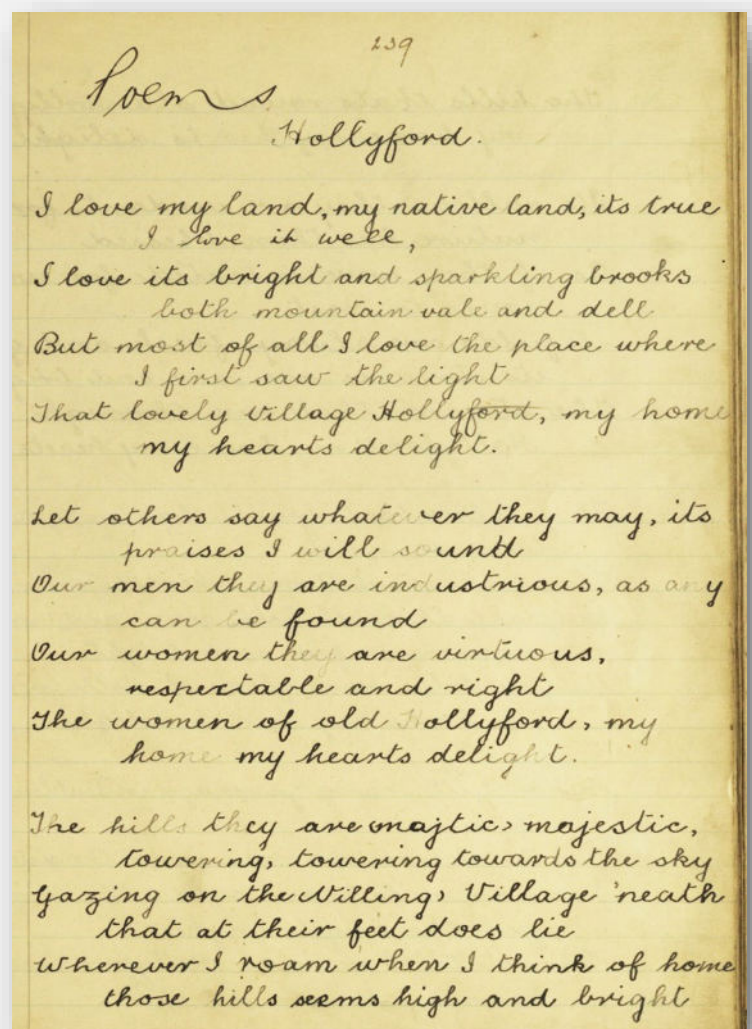 239
Poems
Hollyford.
I love my land, my native land, its true
I love it well,
I love its bright and sparkling brooks
both mountain vale and dell
But most of all I love the place where
I first saw the light
That lovely village Hollyford, my home
my hearts delight.
Let others say whatever they may, its
praises I will sound
Our men they are industrious, as any
can be found
Our women they are virtuous,
respectable and right
The women of old Hollyford, my
home my hearts delight.
The hills they are (majtic) majestic,
towering, towering towards the sky
Gazing on the (Villing) Village 'neath
that at their feet does lie
Wherever I roam when I think of home
those hills seems high and bright